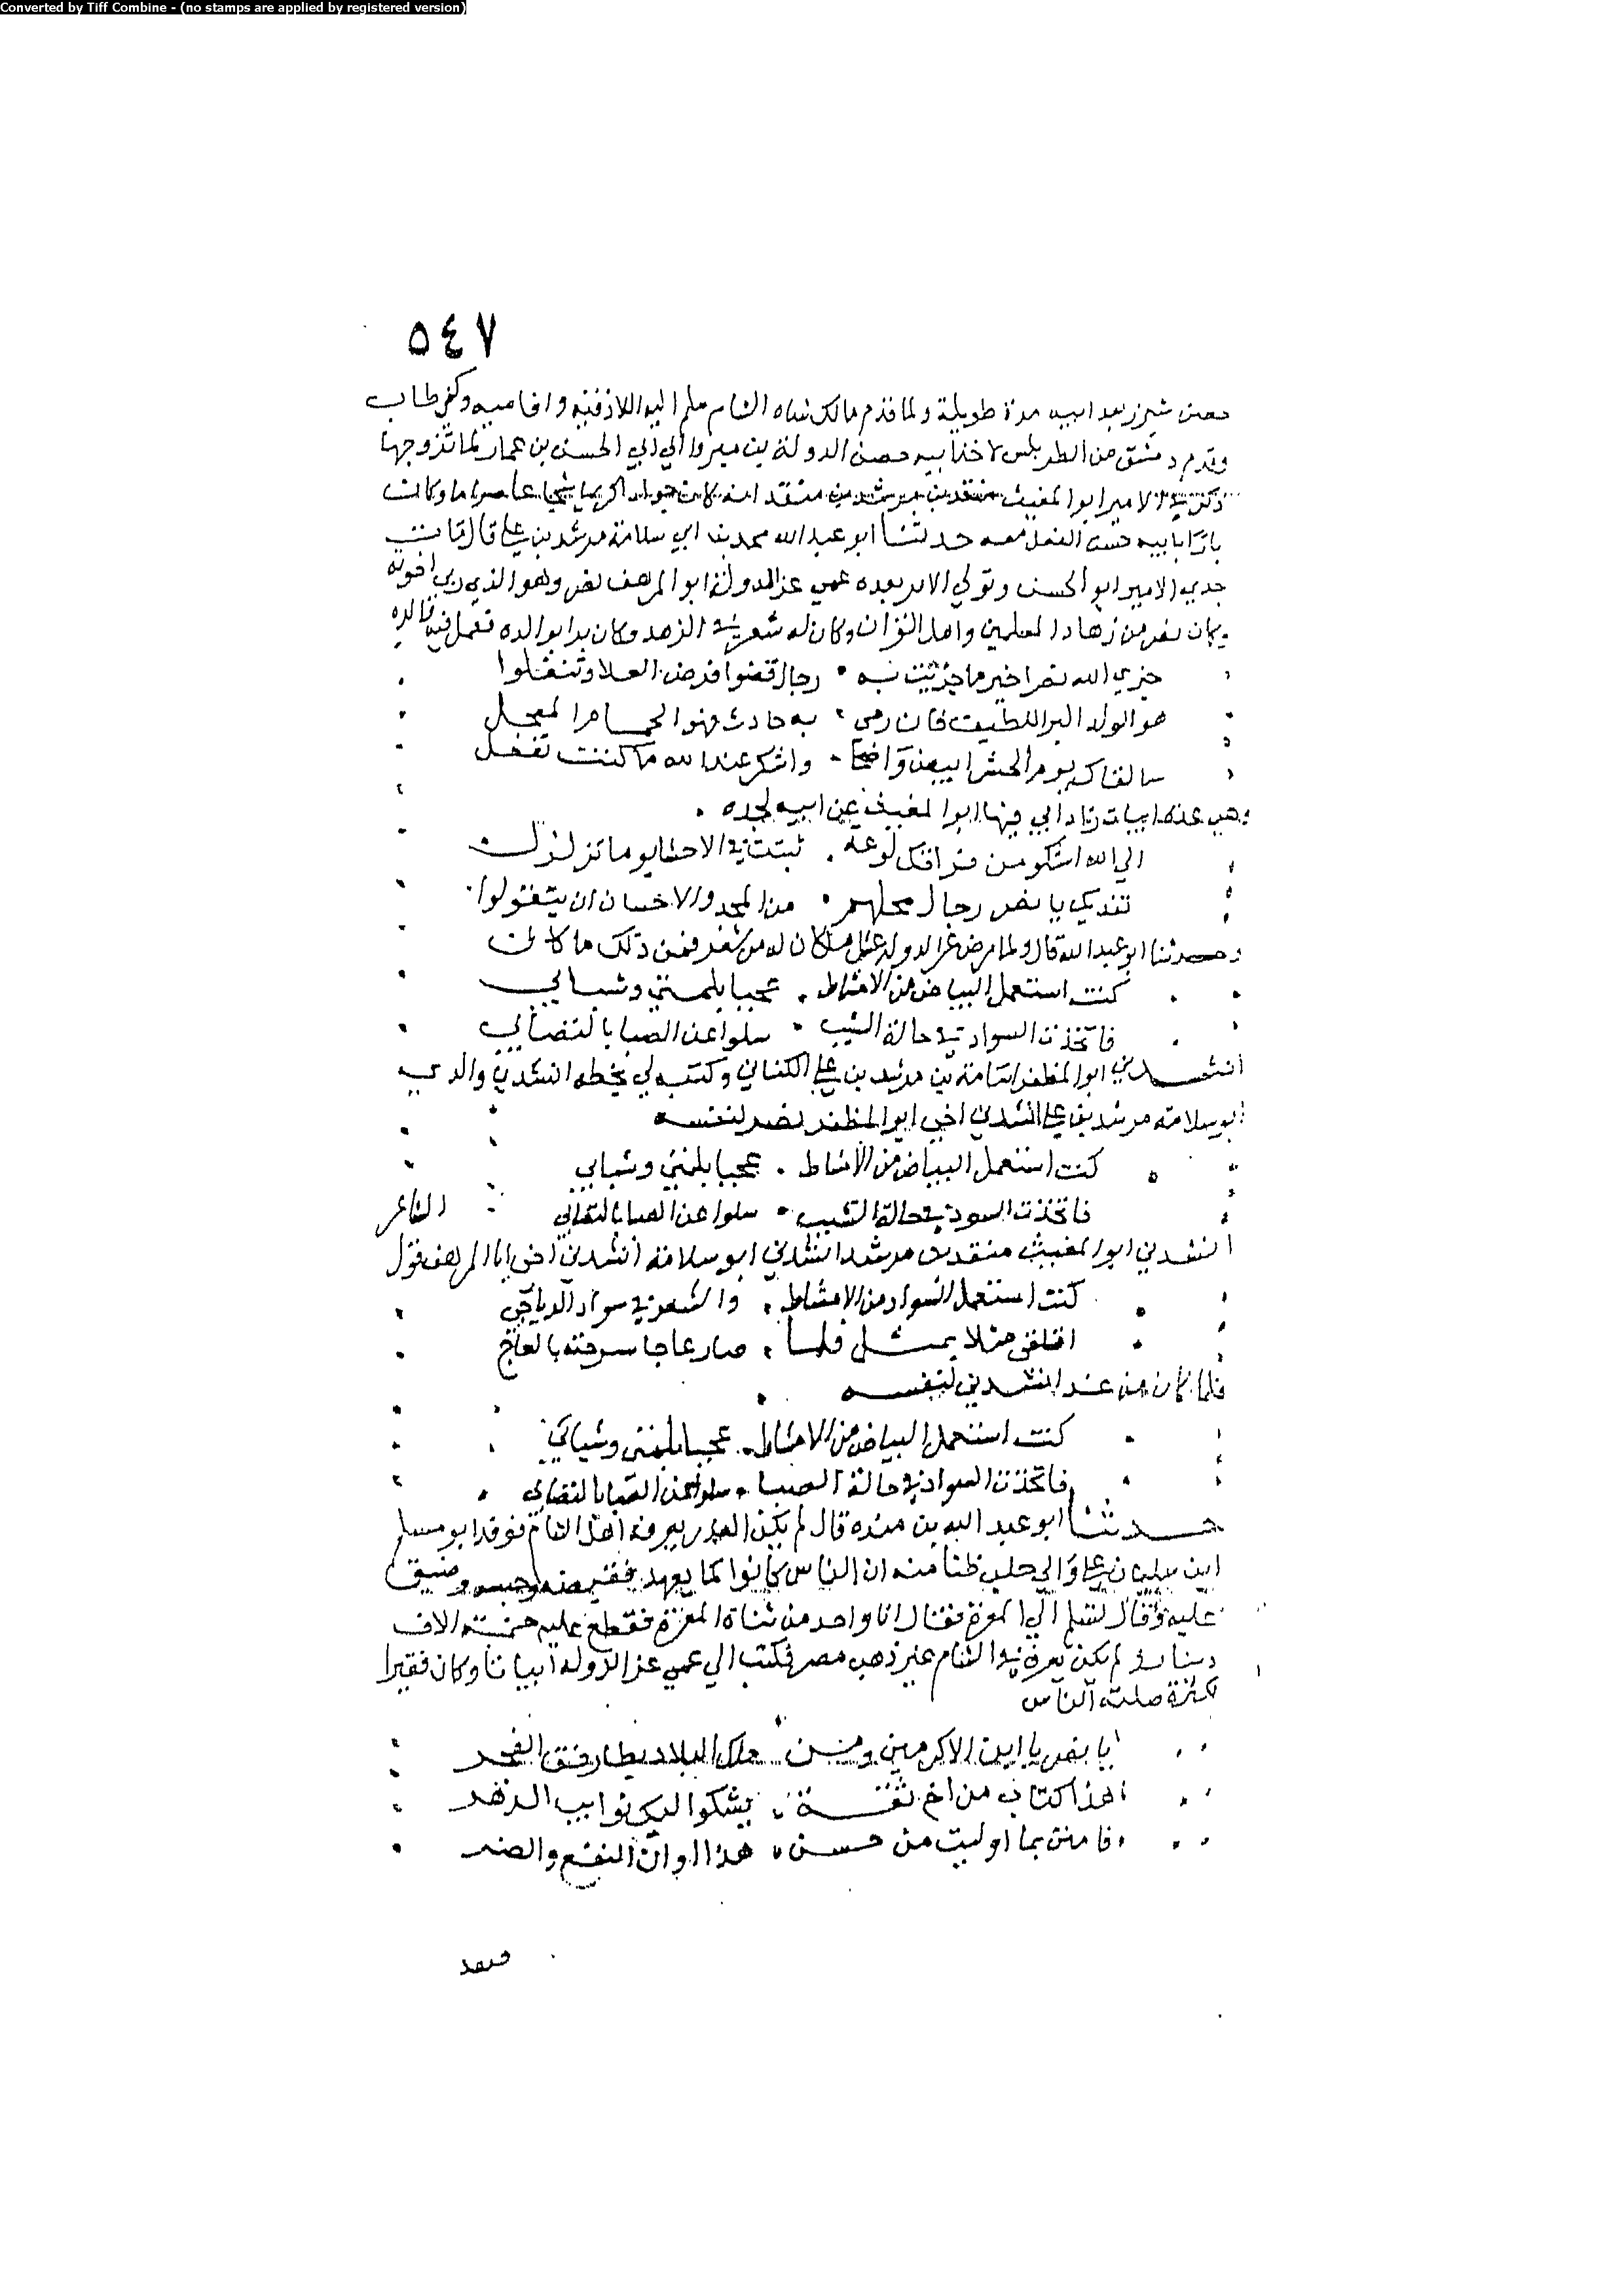 Converted by Tiff Combine - (no stamps are applied by registered version)
٥٤٧
حصن شيزر بعد ابيه مدة طويلة ولما قدم مالك شاه الشام سلم اليه اللاذقية وافاميه وكفرطاب
وقدم دمشق من اطرابلس لاخذ ابيه حصن الدولة بن ميزوا الي ابي الحسن بن عمار لما تزوجها
ذكر لي الامير ابو المغيث منقذ بن مرشد بن منقذ انه كان جوادا كريما شجاعا صراما وكانت
بارا بابيه حسن الفعل معه حدثنا ابو عبد الله محمد بن ابي سلامة مرشد بن علي قال مات
جدي الامير ابو الحسن وتولي الامر بعده عمي عز الدولة ابو المرهف نصر وهو الذي ربي اخوته
وكان نصر من زهاد المسلمين واهل القران وكان له شعر في الزهد وكان برا بوالده فعمل فيه والده
جزي الله نصرا خير ما جزيت به رجال قضوا فرض العلا وتنفلوا
هو الولد البر اللطيف فان رمى به حادث فهو الحمام المعجل
سالقاك يوم الحشر ابيض واضحا واشكر عند الله ما كنت تفعل
وهي عنه ابيات زاد ابي فيها ابو المغيث عن ابيه لجده
الي الله اشكو من فراقك لوعة ثبتت في الاحشا وما تزلزلت
تفديك يا نصر رجال محلهم من المجد والاحسان ان يتقولوا
وحدثنا ابو عبد الله قال ولما مرض عز الدولة غسل ما كان له من شعر فمن ذلك ما كانت
كنت استعمل البياض من الامشاط عجبا بلمتي وشبابي
فاتخذت السواد في حالة الشيب سلوا عن الصبا بالتصابي
انشدني ابو المظفر اسامة بن مرشد بن علي الكناني وكتب لي بخطه انشدني والدي
ابو سلامه مرشد بن علي انشدني اخي ابو المظفر نصر لنفسه
كنت استعمل البياض من الامشاط عجبا بلمتي وشبابي
فاتخذت السود في حالة الشيب سلوا عن الصبا بالتصابي
الشاعر
انشدني ابو المغيث منقذ بن مرشد انشدني ابو سلامة انشدني اخي ابا المرهف قول
كنت استعمل السواد من الامشاط والشعر في سواد الدياجي
اتلقى مثلا بمثل فلما صار عاجا سرحته بالعاج
فلما كان من غد انشدني لنفسه
كنت استعمل البياض من الامشاط عجبا بلمتي وشبابي
فاتخذت السواد في حالة الصبا سلوا عن الصبا بالتصابي
حدثنا ابو عبد الله بن منده قال لم يكن الغدر يعرفه اهل الشام فوفد ابو مسلم
ابن سليمان علي والي حلب ظنا منه ان الناس كانوا كما يعهد فقبض منه وحبسه وضيق
عليه وقال لتسلم الي المعرة فقال انا واحد من ثناة المعرة فقطع عليه خمسة الاف
دينار ولم يكن يعرف في الشام غير ذهب مصر فكتب الي عمي عز الدولة ابياتا وكان فقيرا
لكثرة صلته الناس
يا نصر يا ابن الاكرمين ومن ملك البلاد يطارفق الفخر
هذا كتاب من اخ ثقة يشكوا اليك نوايب الدهر
فامنن بما اوليت من حسن هذا اوان النفع والضر